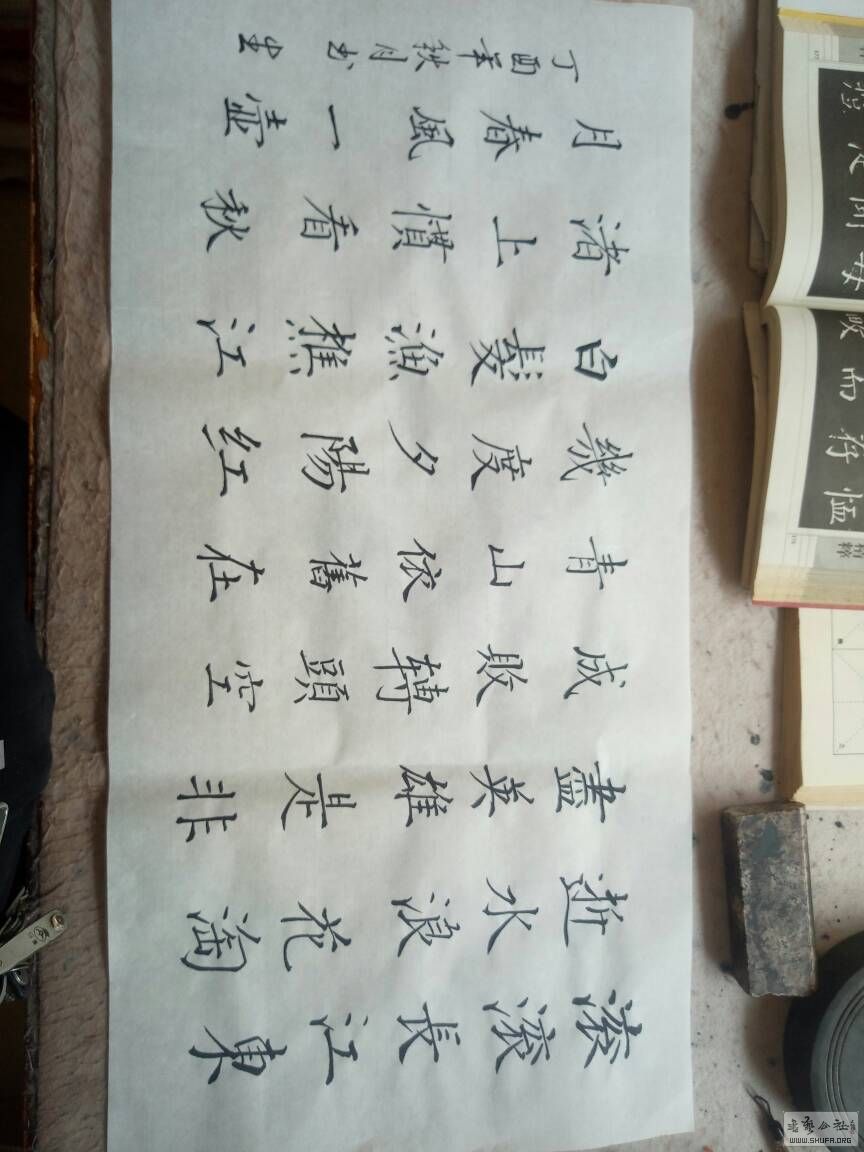 滾滾長江東
逝水浪花淘
盡英雄是非
成敗轉頭空
青山依舊在
幾度夕陽紅
白髮漁樵江
渚上慣看秋
月春風一壺
丁酉年秋月书
而存恤
書藝公社
WWW.SHUFA.ORG